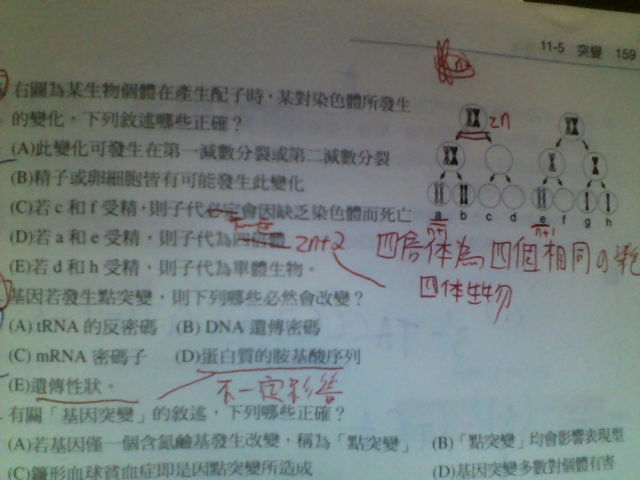 11-5 突變 159
右圖為某生物個體在產生配子時，某對染色體所發生
的變化，下列敘述哪些正確？
(A)此變化可發生在第一減數分裂或第二減數分裂
(B)精子或卵細胞皆有可能發生此變化
(C)若 c 和 f 受精，則子代必定會因缺乏染色體而死亡
(D)若 a 和 e 受精，則子代為四倍體 2n+2
(E)若 d 和 h 受精，則子代為單體生物。
2n
a b c d e f g h
n+1 n+1
四倍体為四個相同の
四体生物
基因若發生點突變，則下列哪些必然會改變？
(A) tRNA 的反密碼 (B) DNA 遺傳密碼
(C) mRNA 密碼子 (D)蛋白質的胺基酸序列
(E)遺傳性狀。 不一定影響
有關「基因突變」的敘述，下列哪些正確？
(A)若基因僅一個含氮鹼基發生改變，稱為「點突變」 (B)「點突變」均會影響表現型
(C)鐮形血球貧血症即是因點突變所造成 (D)基因突變多數對個體有害